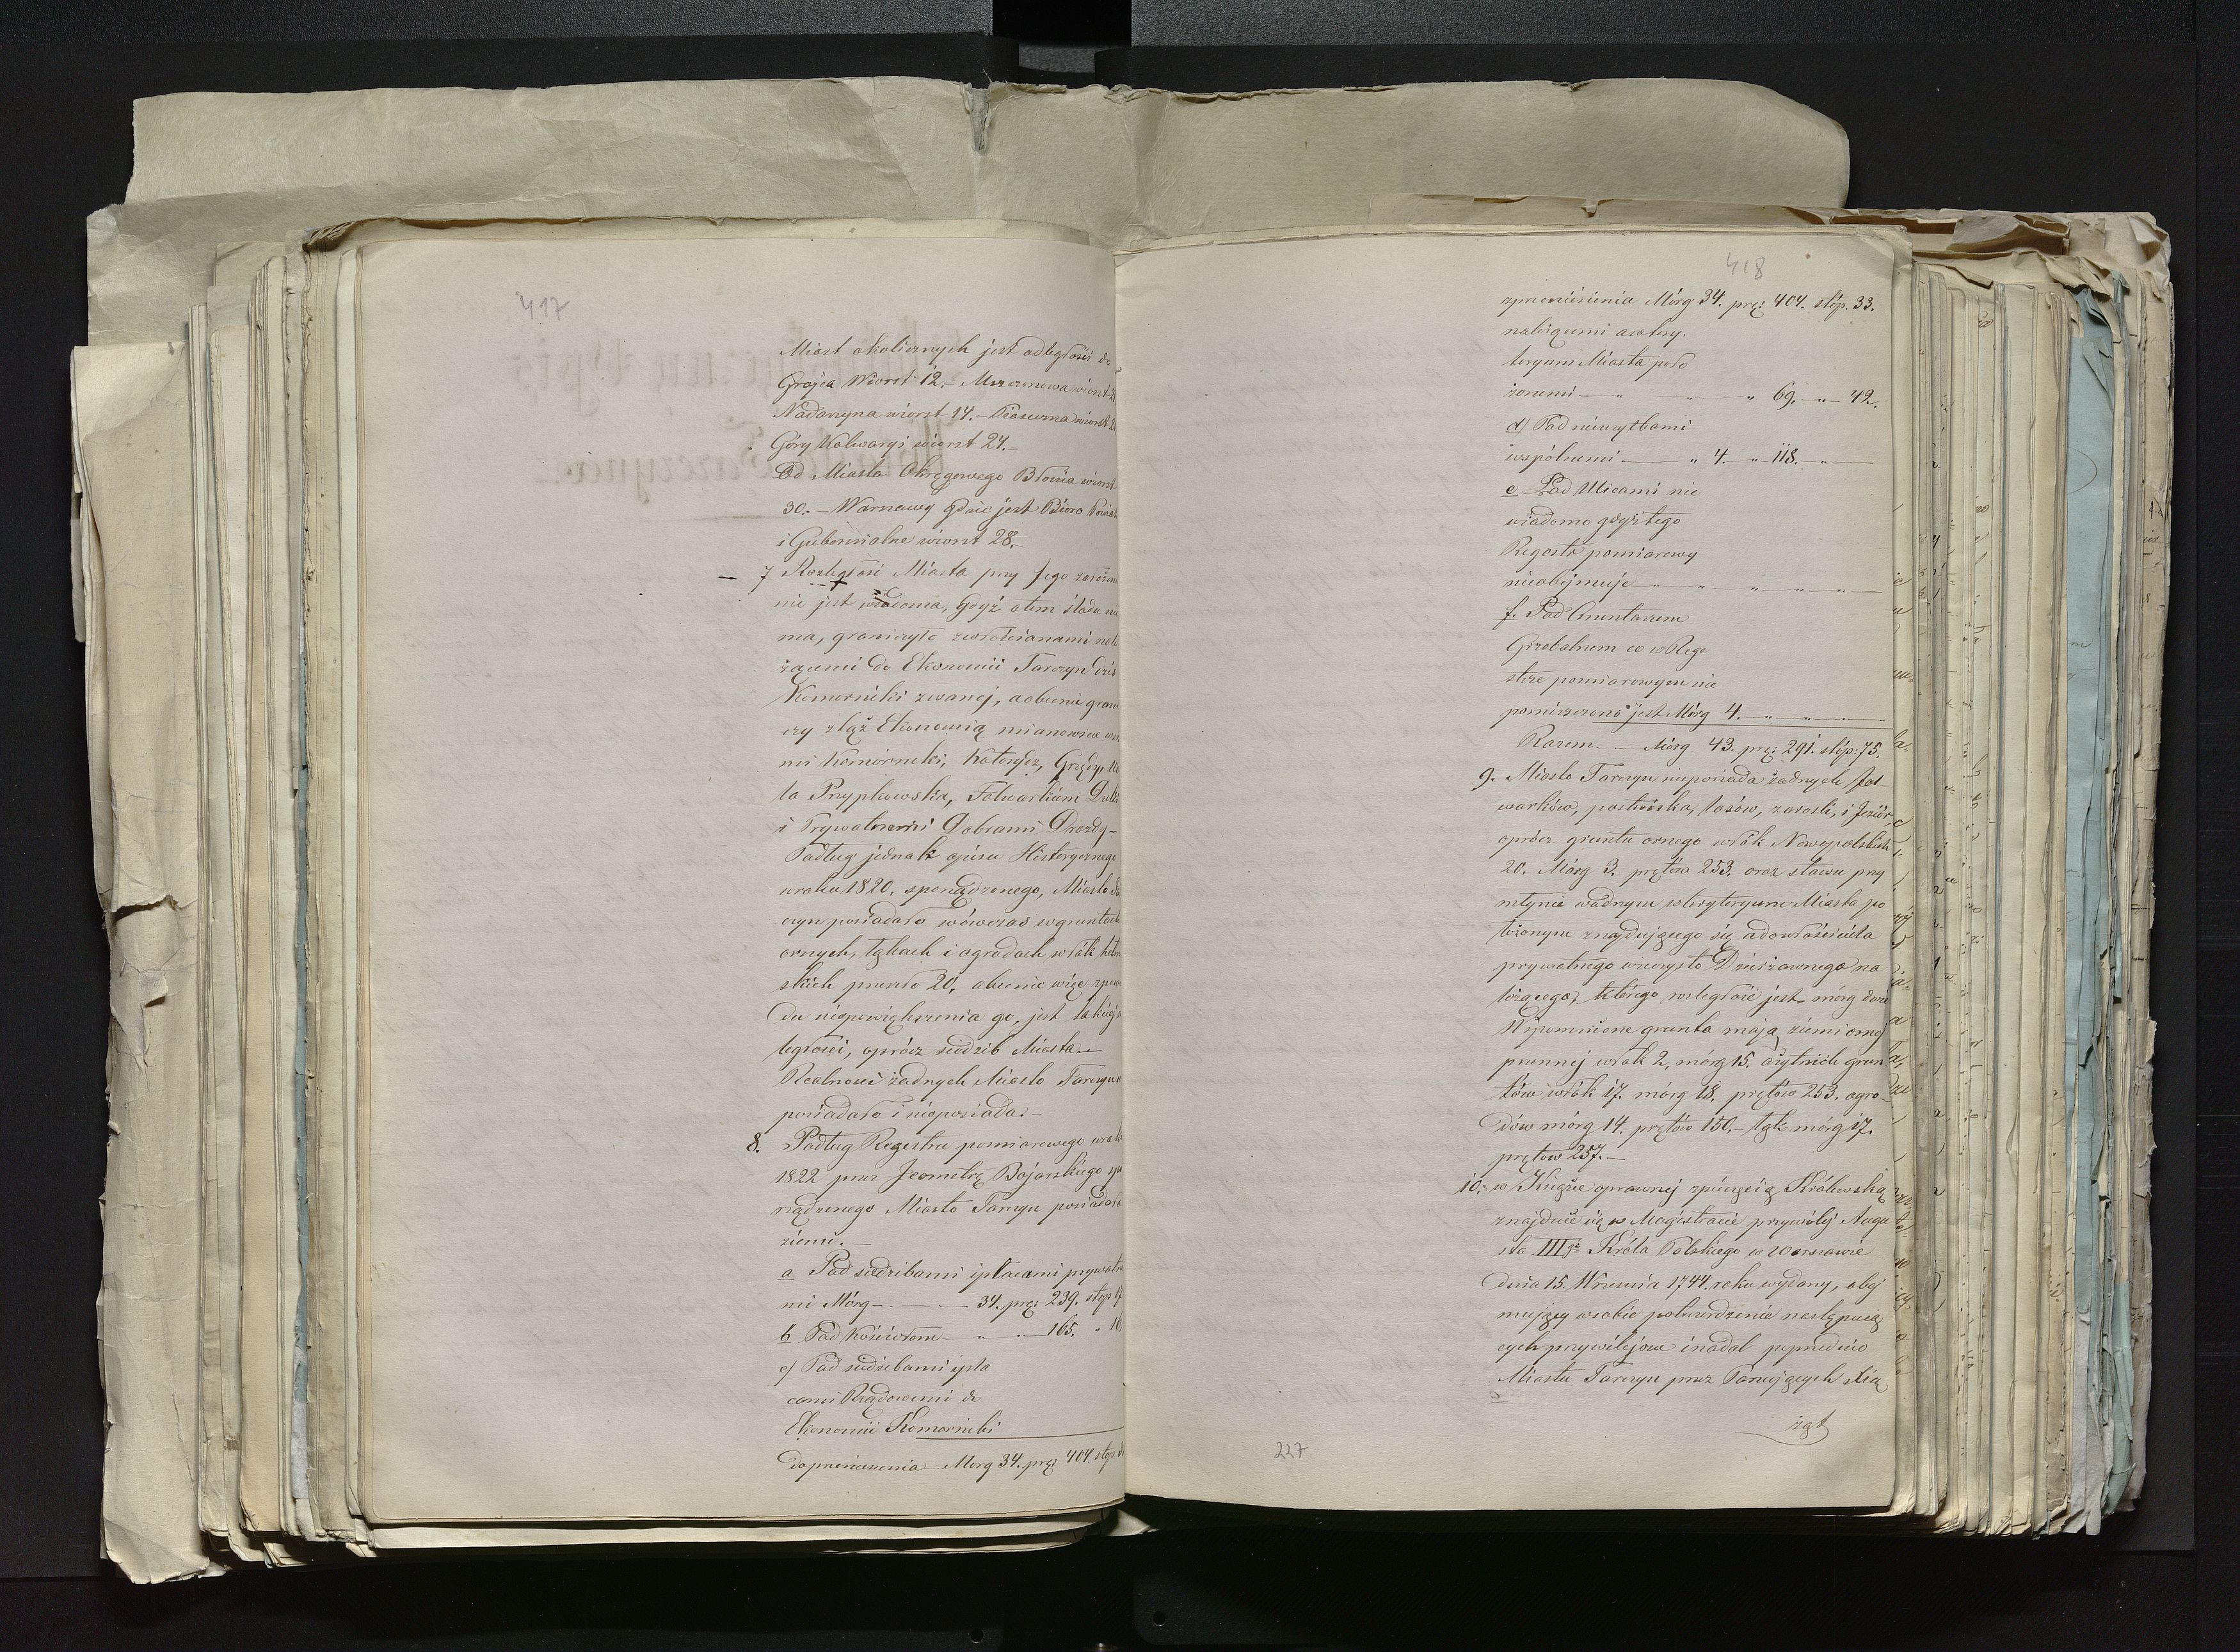 417
Miast okolicznych jest odległość do
Grojca Wiorst 12.– Mszczonowa wiorst 2
Nadarzyna wiorst 14.– Piaseczna wiorst 2
Góry Kalwaryi wiorst 24.–
Od Miasta Okręgowego Błonia wiorst
30.– Warszawy gdzie jest Biuro Powiat
i Gubernialne wiorst 28.–
– 7 Rozległość Miasta przy jego założeniu
nie jest wiadoma, Gdyż otem śladu nie
ma, graniczyło zwłościanami nale
żącemi do Ekonomii Tarczyn dziś
Komorniki zwanej, aobecnie grani
czy ztąż Ekonomią mianowicie wsia
mi Komorniki, Kotorydz, Grzędy, Wo
la Przypkowska, Folwarkiem
i Prywatnemi Dobrami Drozdy–
Podług jednak opisu Historycznego
wroku 1820. sporządzonego, Miasto Ta
czyn posiadało wówczas wgruntach
ornych, łąkach i ogrodach włók
skich przeszło 20. obecnie więc zpowo
du niepowiększenia go, jest takiejż
ległości, oprócz siedzib Miasta.–
Realności żadnych Miasto Tarczyn n
posiadało i nieposiada.–
8. Podług Regestru pomiarowego wroku
1822 przez Jeometrę Bojarskiego spo
rządzonego Miasto Tarczyn posiadało
ziemi.–
a Pod siedzibami iplacami prywatne
mi Mórg – . – . – 34. prę: 239. stóp
b Pod Kościołem – „ – „ – 165. „ 16
c) Pod siedzibami ipla
cami Rządowemi do
Ekonomii Komorniki
do przeniesienia – Morg 34. prę: 404. stóp
418
zprzeniesienia Mórg 34. prę: 404. stóp. 33.
należącemi awtery-
toryum Miasta poło
żonemi – „ „ „ 69. „ – 42.
d) Pod nieużytkami
wspólnemi – „ 4. „ – 118. „ –
e Pod Ulicami nie
wiadomo gdyż tego
Regestr pomiarowy
nieobejmuje – „ – „ – „ – „ – „ –
f. Pod Cmentarzem
Grzebalnem co wRege
strze pomiarowym nie
pomieszczono jest Mórg 4. – „ – „ – „ –
Razem – – Mórg 43. prę: 291. stóp: 75.
9. Miasto Tarczyn nieposiada żadnych fol-
warków, pastwiska, lasów, zarośli, i Jezior,
oprócz gruntu ornego włók Nowopolskich
20. Mórg 3. prętów 253. oraz stawu przy
młynie wodnym wterytoryum Miasta po
łożonym znajdującego się adowłaściciela
prywatnego wieczysto Dzierżawnego na
leżącego, którego rozległość jest mórg dwie
Wspomnione grunta mają ziemi ornej
pszennej włók 2. mórg 15. ażytnich grun
tów włók 17. mórg 18. prętów 253. ogro-
dów mórg 14. prętów 150.– łąk mórg 17.
prętow 257.–
10. w Księdze oprawnej zpieczęcią Królewską
znajduie się w Magistracie przywilej Augu
sta IIIgo Króla Polskiego w Warszawie
dnia 15. Września 1744. roku wydany, obej
mujący wsobie potwierdzenie następują
cych przywilejow inadal poprzednio
Miastu Tarczyn przez Panujących Xią
żąt
227